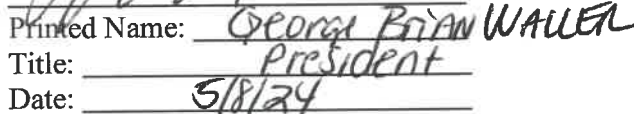 Printed Name: George Brian WALLER
Title: President
Date: 5/8/24